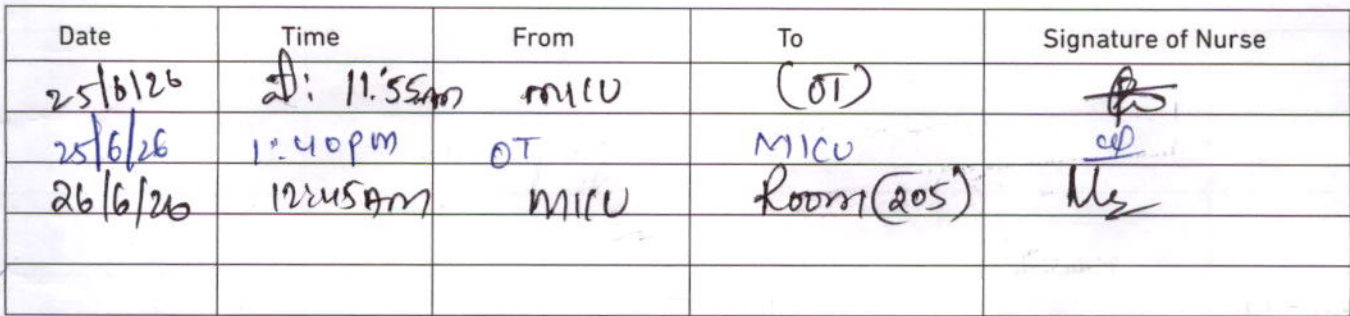 Date Time From To Signature of Nurse
25/6/26 11:55am MICU (OT)
25/6/26 1:40pm OT MICU
26/6/26 12:45AM MICU Room (205)